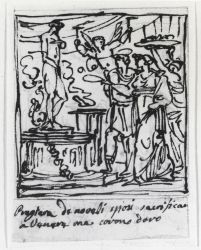 Preghiera di novelli sposi sacrifica
a Venere una corona d'oro